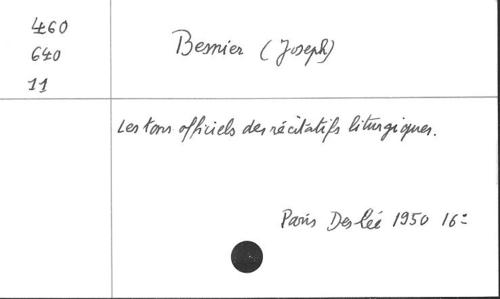 460
640
11
Besnier (Joseph)
Les tons officiels des récitatifs liturgiques.
Paris Desclée 1950 16º